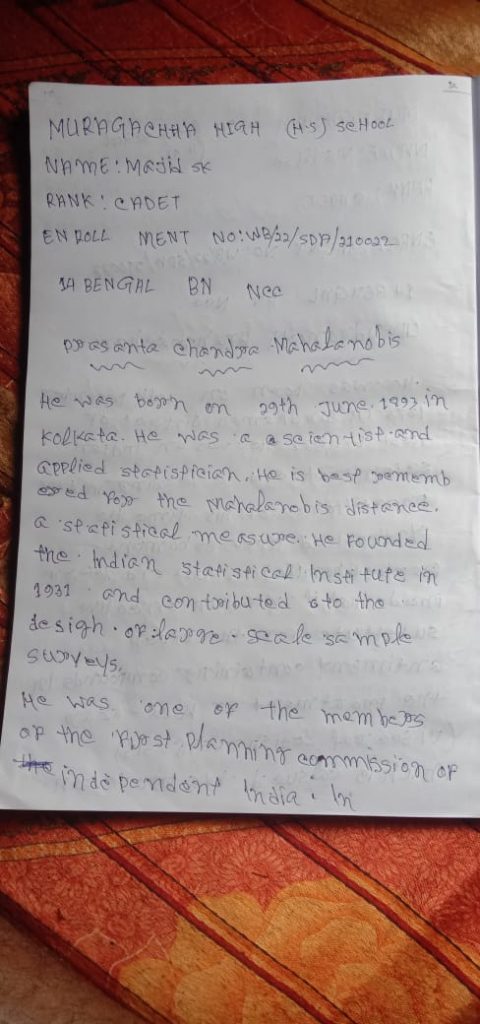 MURAGACHHA HIGH (H.S) SCHOOL
NAME: Majid SK
RANK: CADET
ENROLL MENT NO: WB/22/SDA/210022
14 BENGAL BN NCC
prasanta chandra Mahalanobis
He was born on 29th June. 1893, in
Kolkata. He was a a scientist and
applied statistician. He is best rememb
ered for the Mahalanobis distance.
a statistical measure. He Founded
the Indian Statistical Institute in
1931 and contributed to the
design of large - scale sample
surveys.
He was one of the members
of the first planning commission of
the independent India. In